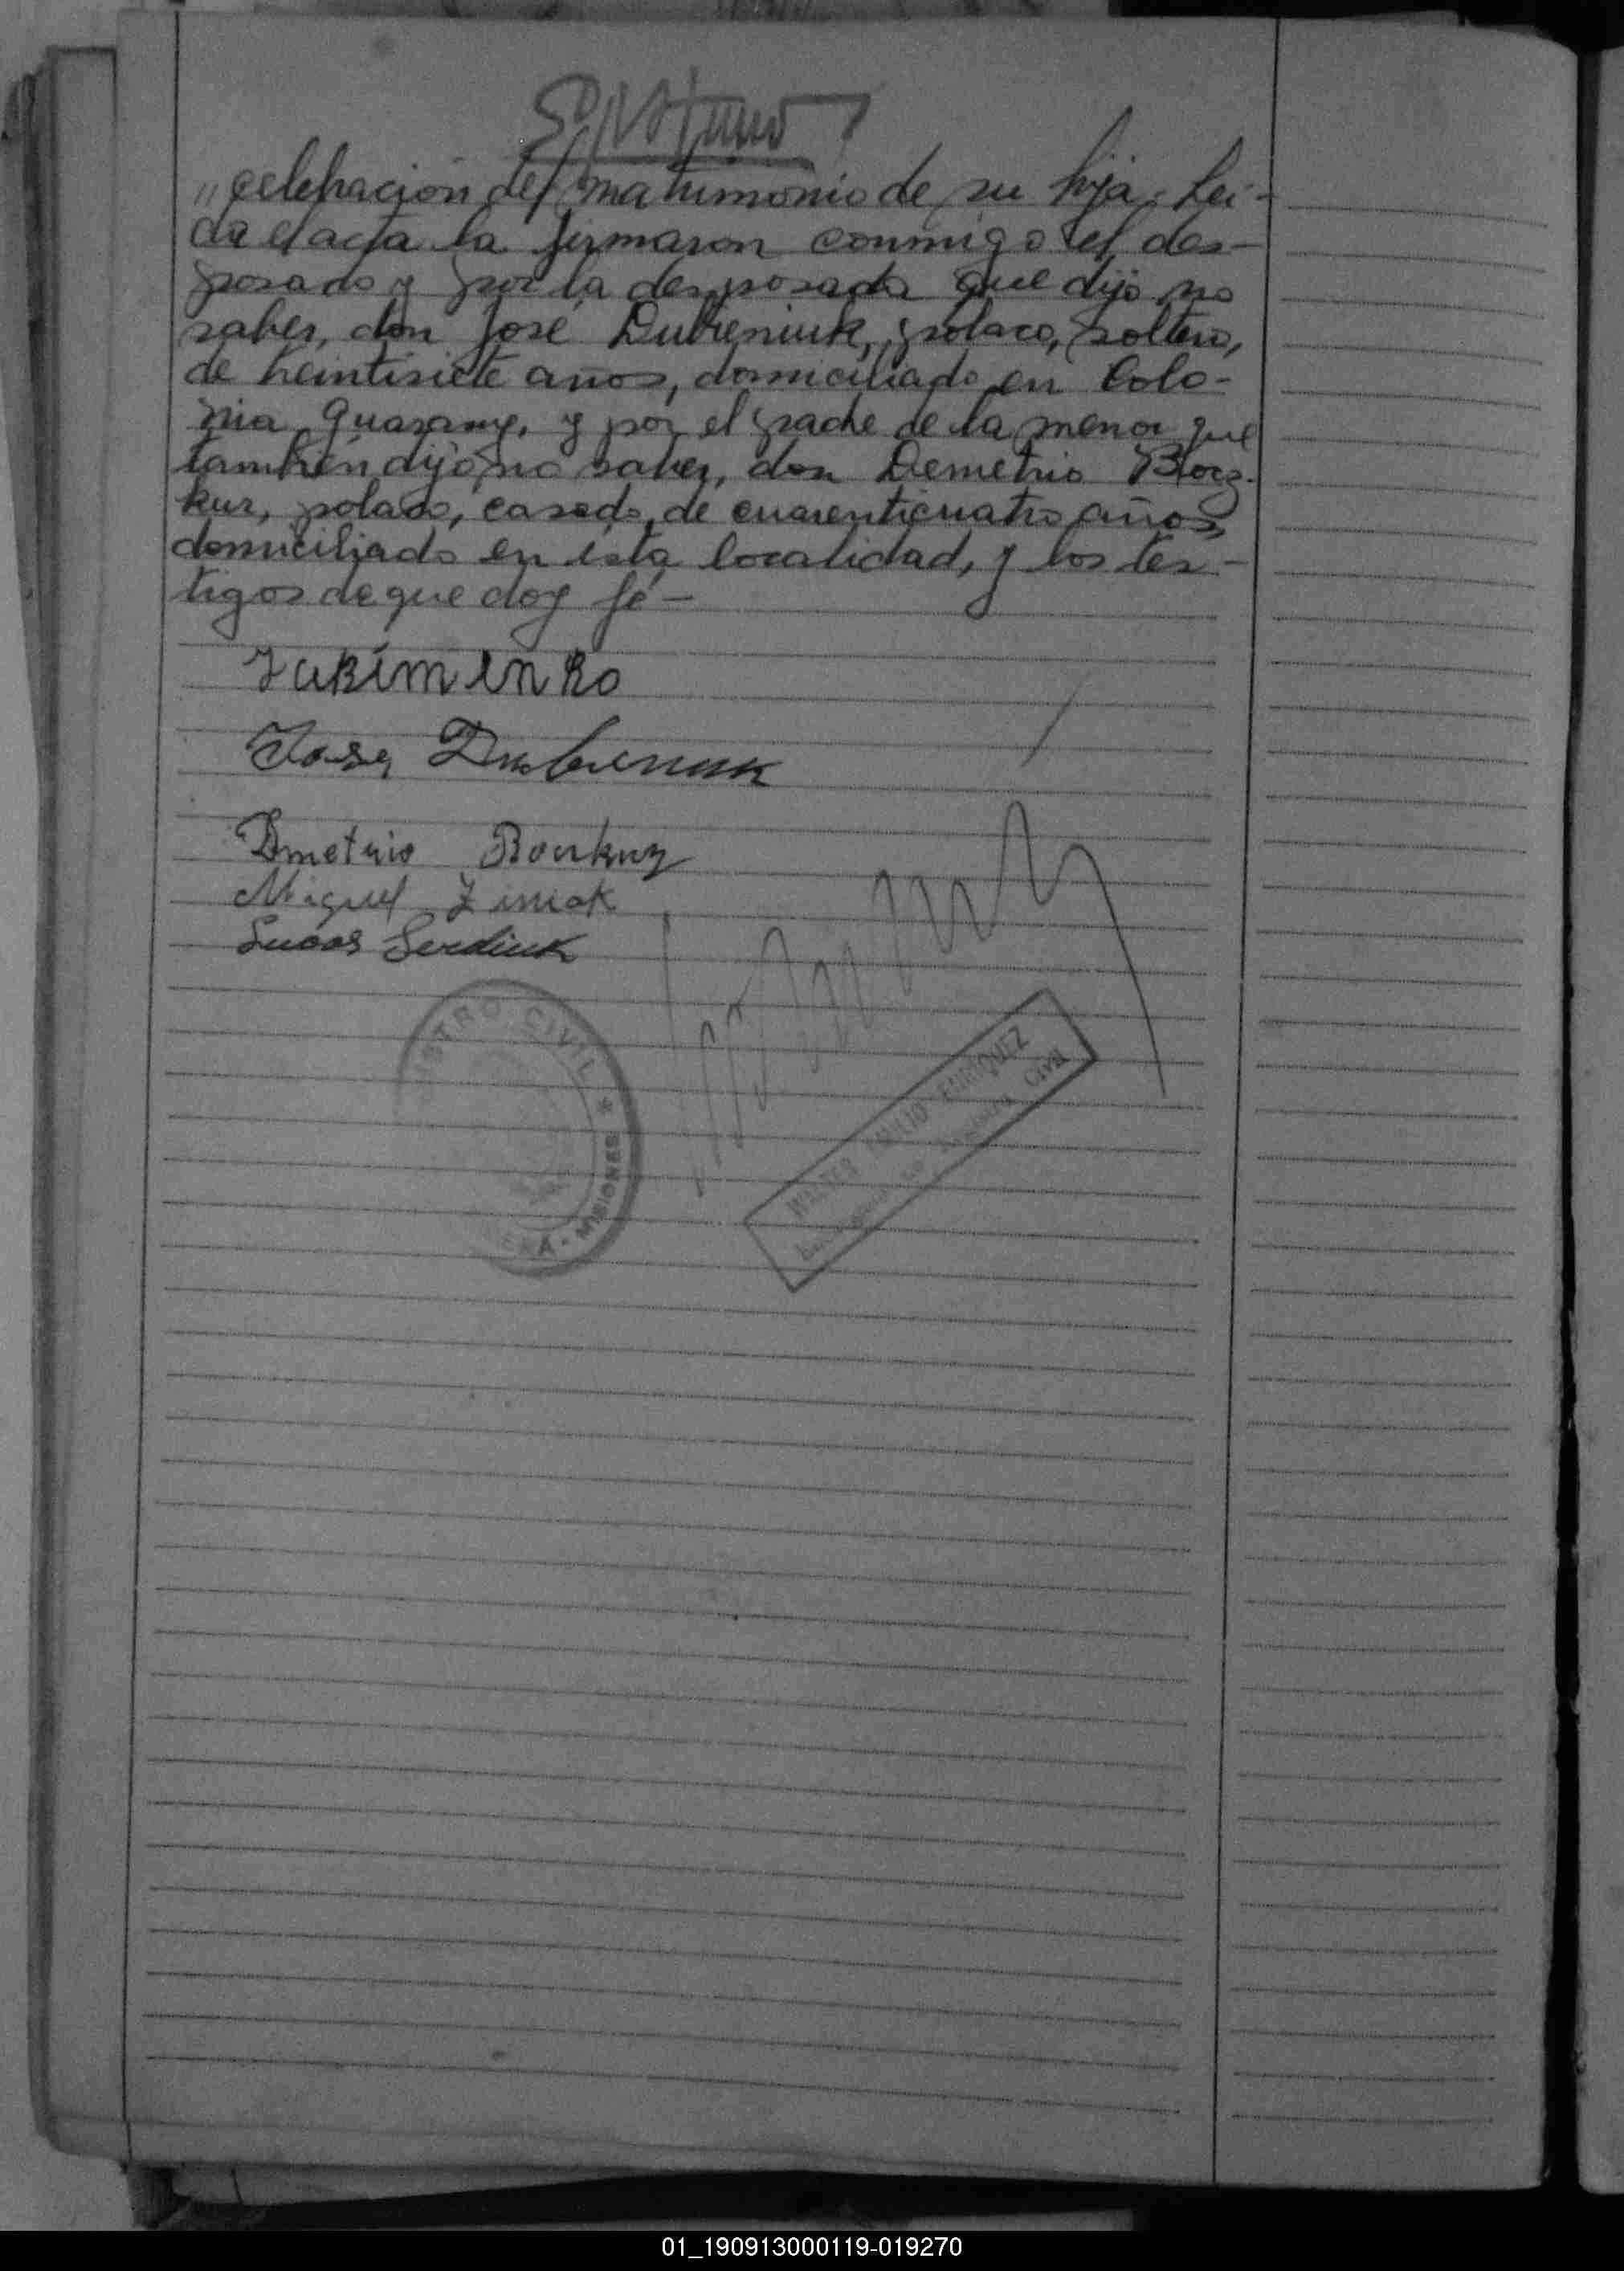 "celebración del matrimonio de su hija. Lei-
da el acta la firmaron conmigo el des-
posado y por la desposada que dijo no
saber, don José Dubreniuk, polaco, soltero,
de veintisiete años, domiciliado en Colo-
nia Guarany, y por el padre de la menor que
también dijo no saber, don Demetrio Bocz-
kur, polaco, casado, de cuarenticuatro años,
domiciliado en ésta localidad, y los tes-
tigos de que doy fé-
Jakimenko
Dmetrio
Miguel Ziniak
Lucas Serdiuk
ISTRO CIVIL * MISIONES
WALTER EMILIO ENRIQUEZ
CIVIL
01_190913000119-019270